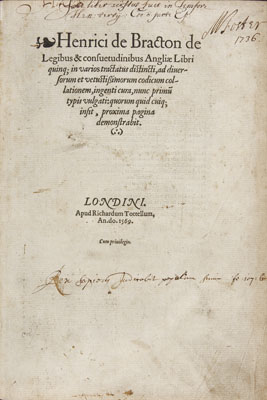 liber
1736.
Henrici de Bracton de
Legibus & consuetudinibus Angliæ Libri
quinq; in varios tractatus distincti, ad diuer-
sorum et vetustissimorum codicum col-
lationem, ingenti cura, nunc primū
typis vulgati: quorum quid cuiq;
insit, proxima pagina
demonstrabit.
(∴)
LONDINI.
Apud Richardum Tottellum,
An. do. 1569.
Cum priuilegio.